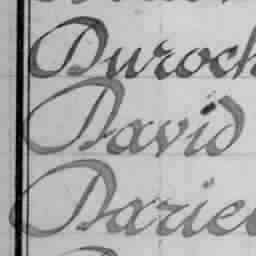 Duroch
David
Darie